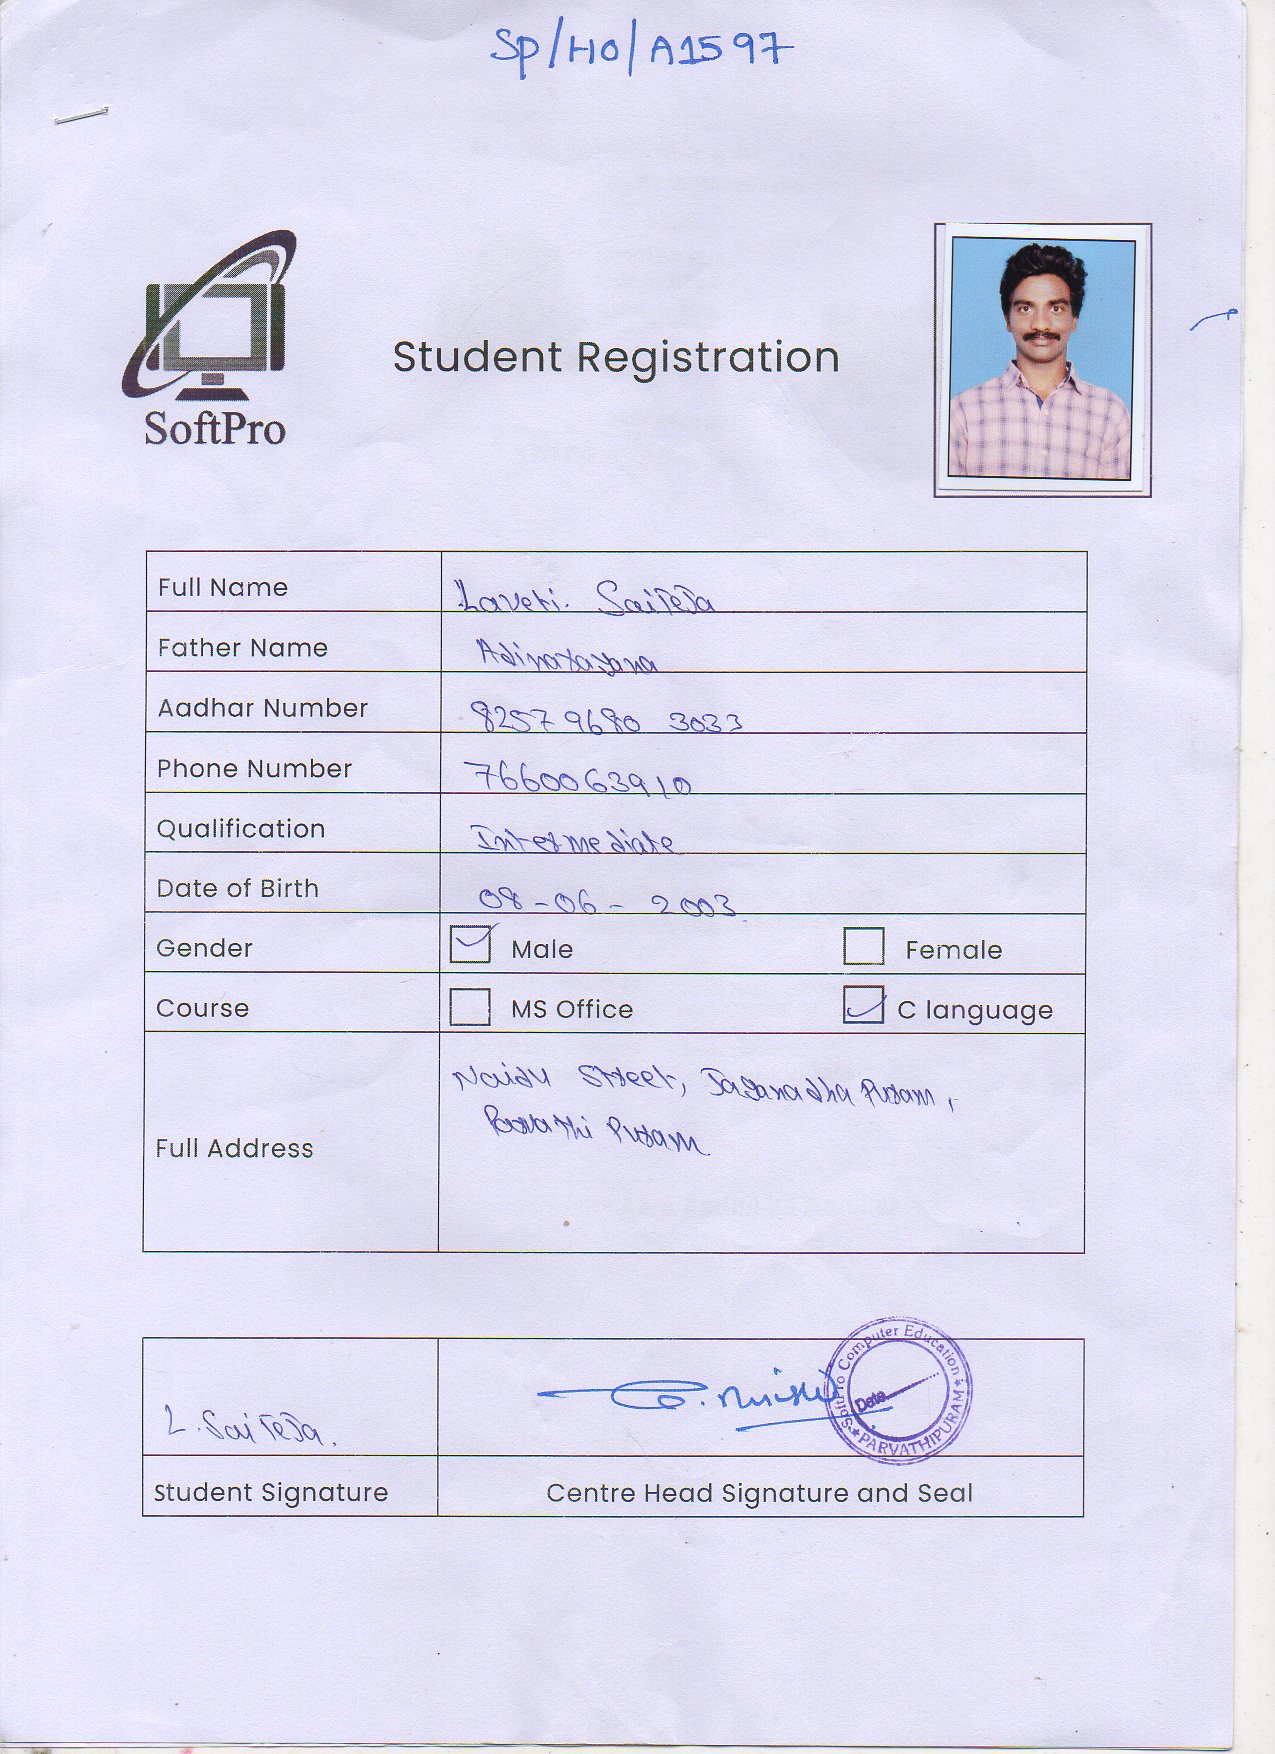 SP/HO/A1597
SoftPro
Student Registration
Full Name Laveti. SaiTeJa
Father Name Adinarayana
Aadhar Number 8257 9680 3033
Phone Number 7660063910
Qualification Intermediate
Date of Birth 08-06-2003
Gender Male Female
Course MS Office C language
Full Address Naidu Street, Jaganadha Puram,
Parvathi Puram
L. SaiTeJa.
SoftPro Computer Education
Date
PARVATHIPURAM
Student Signature Centre Head Signature and Seal